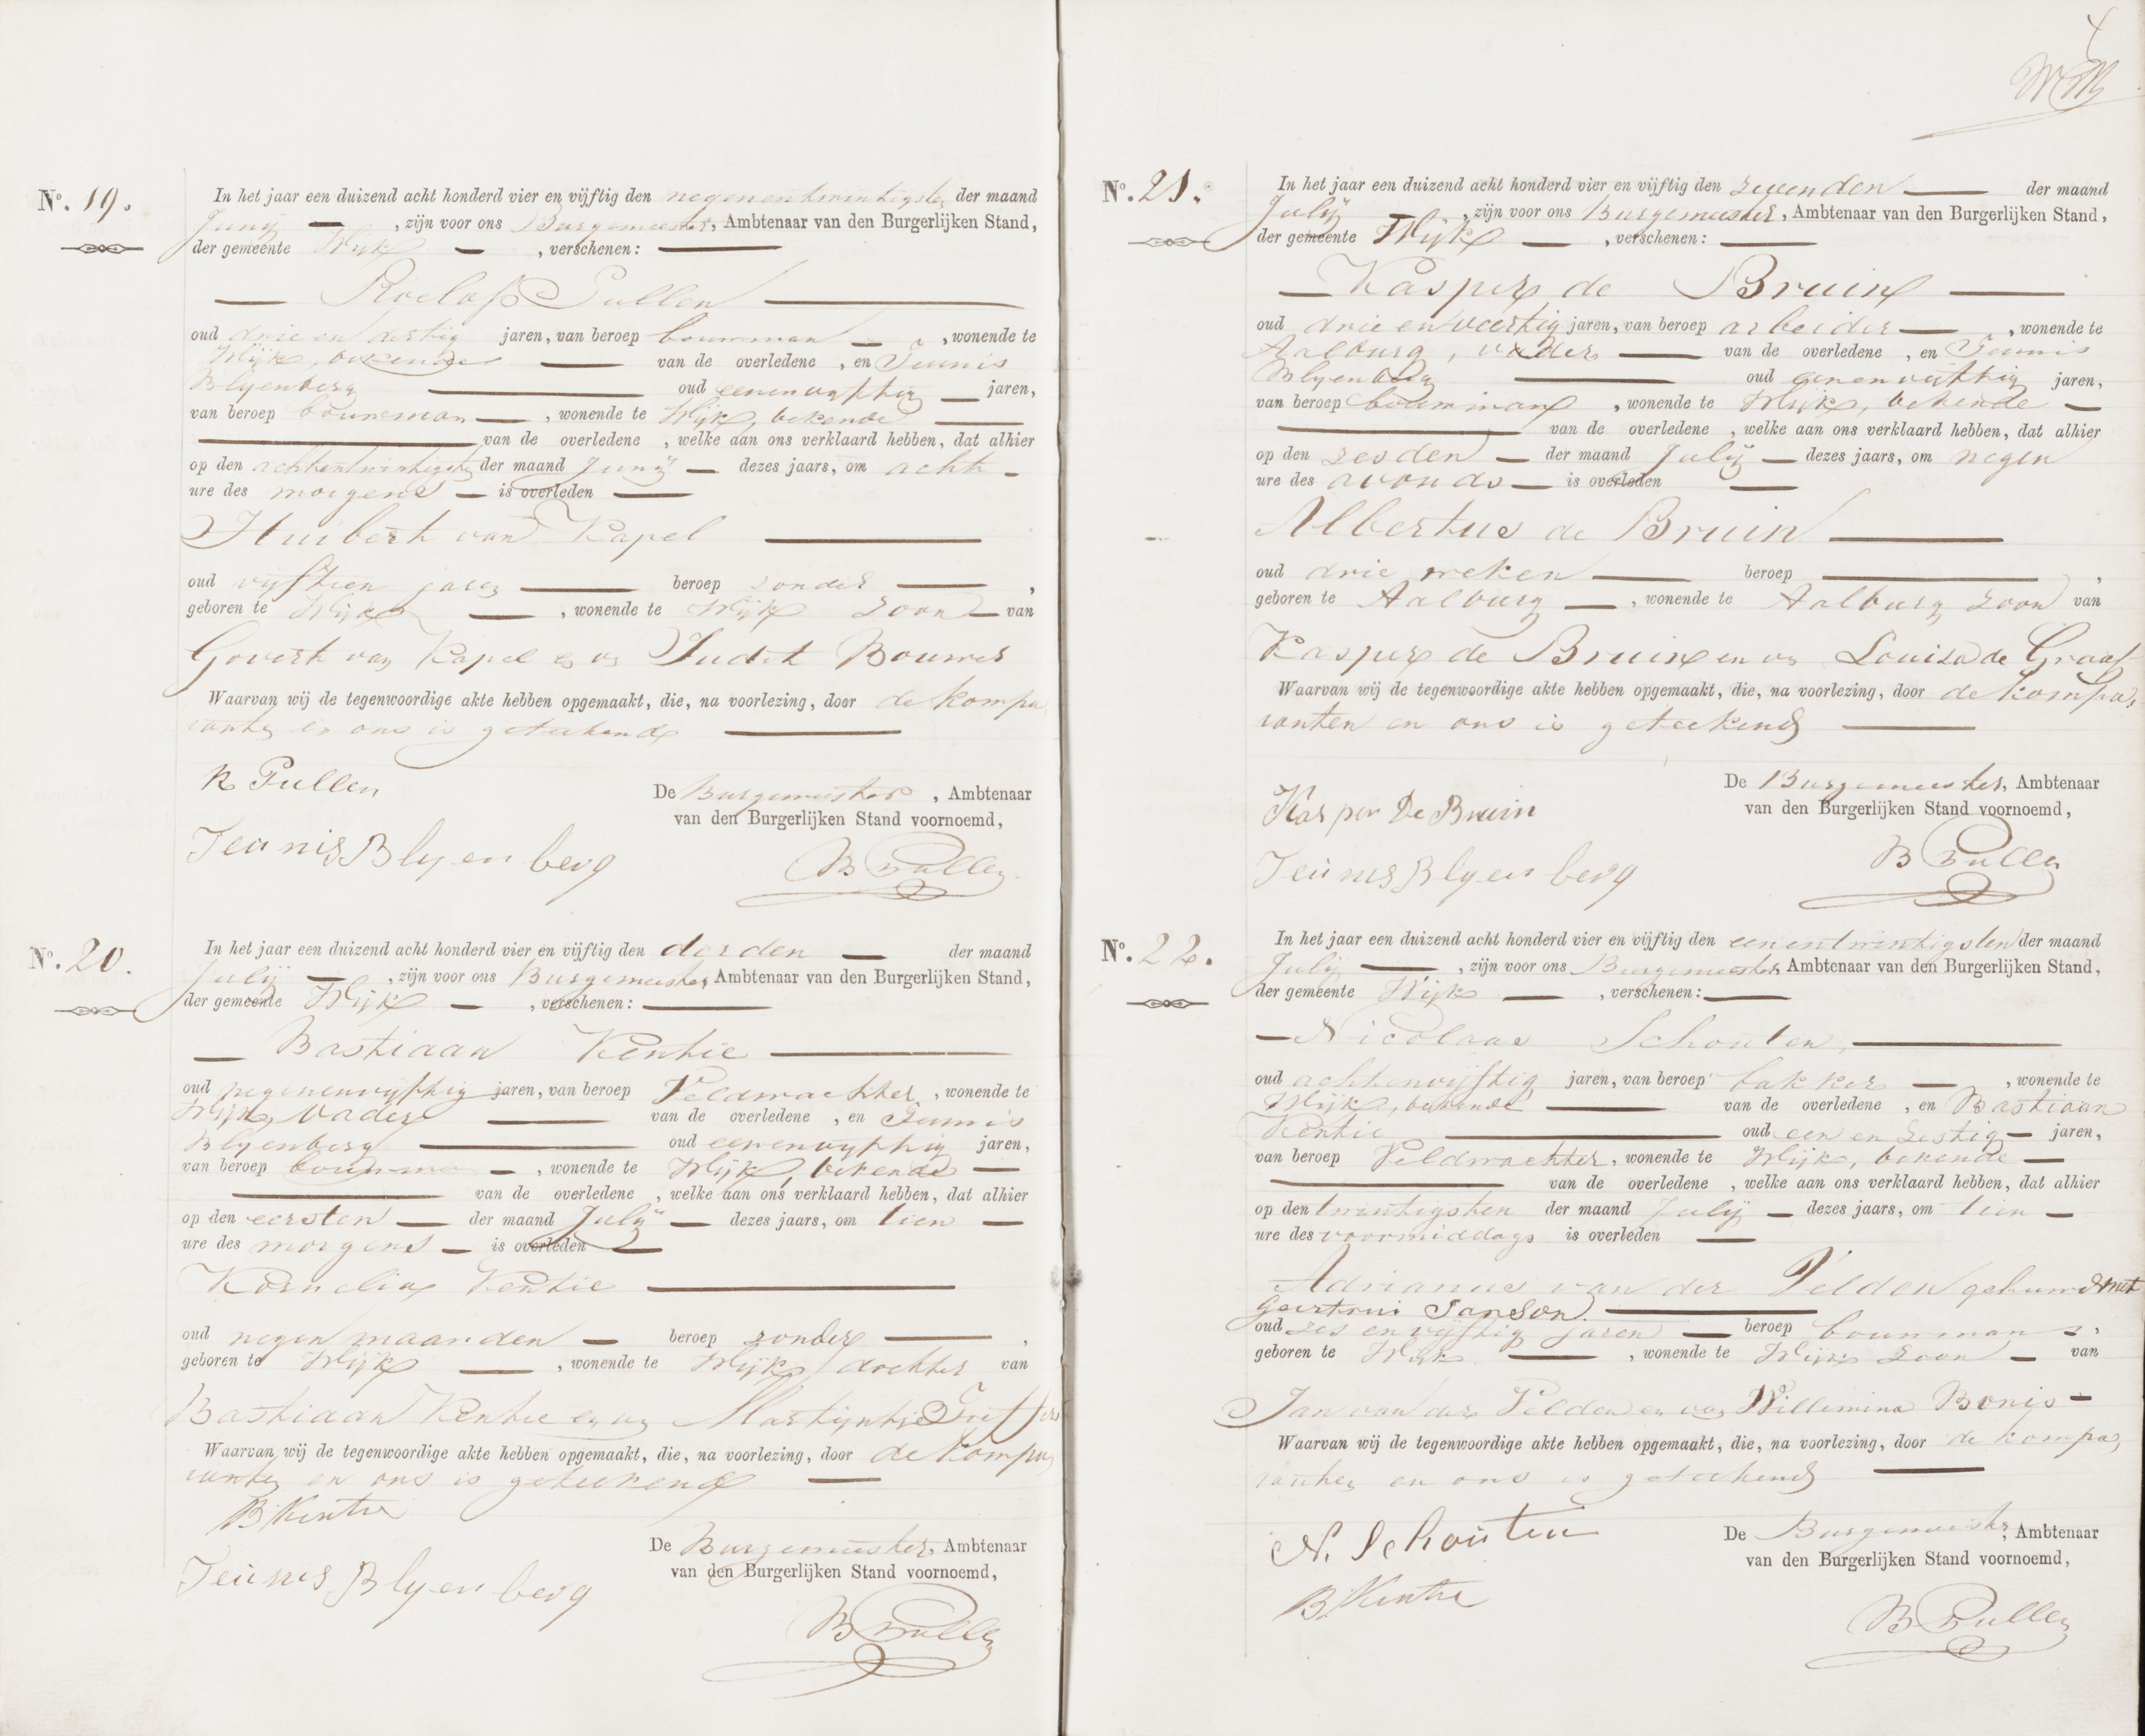 No. 19.
In het jaar een duizend acht honderd vier en vijftig den negenentwintigsten der maand
Junij , zijn voor ons Burgemeester, Ambtenaar van den Burgerlijken Stand,
der gemeente Wijk , verschenen:
Roeloff Pullen
oud drie en dertig jaren, van beroep bouwman , wonende te
Wijk, bekende van de overledene , en Teunis
Blyenberg oud eenenvyftig jaren,
van beroep bouwman , wonende te Wijk, bekende
van de overledene , welke aan ons verklaard hebben, dat alhier
op den achtentwintigsten der maand Junij dezes jaars, om acht
ure des morgens is overleden
Huibert van Kapel
oud vijftien jaren beroep zonder ,
geboren te Wijk , wonende te Wijk zoon van
Govert van Kapel en van Judik Bouwer
Waarvan wij de tegenwoordige akte hebben opgemaakt, die, na voorlezing, door de kompa
ranten en ons is geteekend
R Pullen
De Burgemeester , Ambtenaar
van den Burgerlijken Stand voornoemd,
Teunis Blyenberg
B Pullen
No. 20.
In het jaar een duizend acht honderd vier en vijftig den derden der maand
Julij , zijn voor ons Burgemeester Ambtenaar van den Burgerlijken Stand,
der gemeente Wijk , verschenen:
Bastiaan Kentie
oud negenenvyftig jaren, van beroep Veldwachter , wonende te
Wijk, vader van de overledene , en Teunis
Blyenberg oud eenenvyftig jaren,
van beroep bouwman , wonende te Wijk, bekende
van de overledene , welke aan ons verklaard hebben, dat alhier
op den eersten der maand Julij dezes jaars, om tien
ure des morgens is overleden
Kornelia Kentie
oud negen maanden beroep zonder ,
geboren te Wijk , wonende te Wijk dochter van
Bastiaan Kentie en van Martijntje Treffers
Waarvan wij de tegenwoordige akte hebben opgemaakt, die, na voorlezing, door de kompa
ranten en ons is geteekend
B Kentie
De Burgemeester, Ambtenaar
van den Burgerlijken Stand voornoemd,
Teunis Blyenberg
B Pullen
4
No. 21.
In het jaar een duizend acht honderd vier en vijftig den zevenden der maand
Julij , zijn voor ons Burgemeester, Ambtenaar van den Burgerlijken Stand,
der gemeente Wijk , verschenen:
Kasper de Bruin
oud drie en veertig jaren, van beroep arbeider , wonende te
Aalburg, vader van de overledene , en Teunis
Blyenberg oud eenenvijftig jaren,
van beroep bouwman , wonende te Wijk, bekende
van de overledene , welke aan ons verklaard hebben, dat alhier
op den zesden der maand Julij dezes jaars, om negen
ure des avonds is overleden
Albertus de Bruin
oud drie weken beroep ,
geboren te Aalburg , wonende te Aalburg zoon van
Kasper de Bruin en van Louisa de Graaf
Waarvan wij de tegenwoordige akte hebben opgemaakt, die, na voorlezing, door de kompa
ranten en ons is geteekend
De Burgemeester, Ambtenaar
van den Burgerlijken Stand voornoemd,
Kasper De Bruin
Teunis Blyenberg
B Pullen
No. 22.
In het jaar een duizend acht honderd vier en vijftig den eenentwintigsten der maand
Julij , zijn voor ons Burgemeester Ambtenaar van den Burgerlijken Stand,
der gemeente Wijk , verschenen:
Nicolaas Schouten,
oud achtenvijftig jaren, van beroep bakker , wonende te
Wijk, bekende van de overledene , en Bastiaan
Kentie oud een en zestig jaren,
van beroep Veldwachter, wonende te Wijk, bekende
van de overledene , welke aan ons verklaard hebben, dat alhier
op den twintigsten der maand Julij dezes jaars, om tien
ure des voormiddags is overleden
Adrianus van der Velden gehuwd met
Geertrui Janson.
oud zes en vijftig jaren beroep bouwman ,
geboren te Wijk , wonende te Wijk zoon van
Jan van der Velden en van Willemina Bonis
Waarvan wij de tegenwoordige akte hebben opgemaakt, die, na voorlezing, door de kompa
ranten en ons is geteekend
N. Schouten
De Burgemeester, Ambtenaar
van den Burgerlijken Stand voornoemd,
B. Kentie
B Pullen